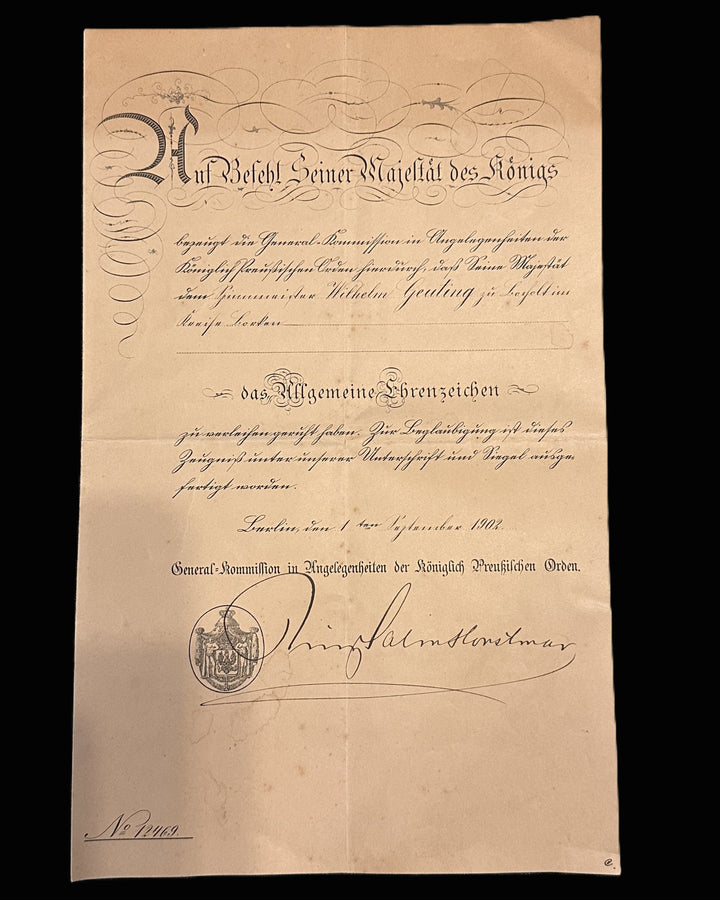 Auf Befehl Seiner Majestät des Königs
bezeugt die General-Kommission in Angelegenheiten der
Königlich Preußischen Orden hierdurch, daß Seine Majestät
dem Spinnmeister Wilhelm Geuting zu Bocholt im
Kreise Borken
das Allgemeine Ehrenzeichen
zu verleihen geruht haben. Zur Beglaubigung ist dieses
Zeugniß unter unserer Unterschrift und Siegel ausge-
fertigt worden.
Berlin, den 1ten September 1902.
General-Kommission in Angelegenheiten der Königlich Preußischen Orden.
Salm Horstmar
No 12469.